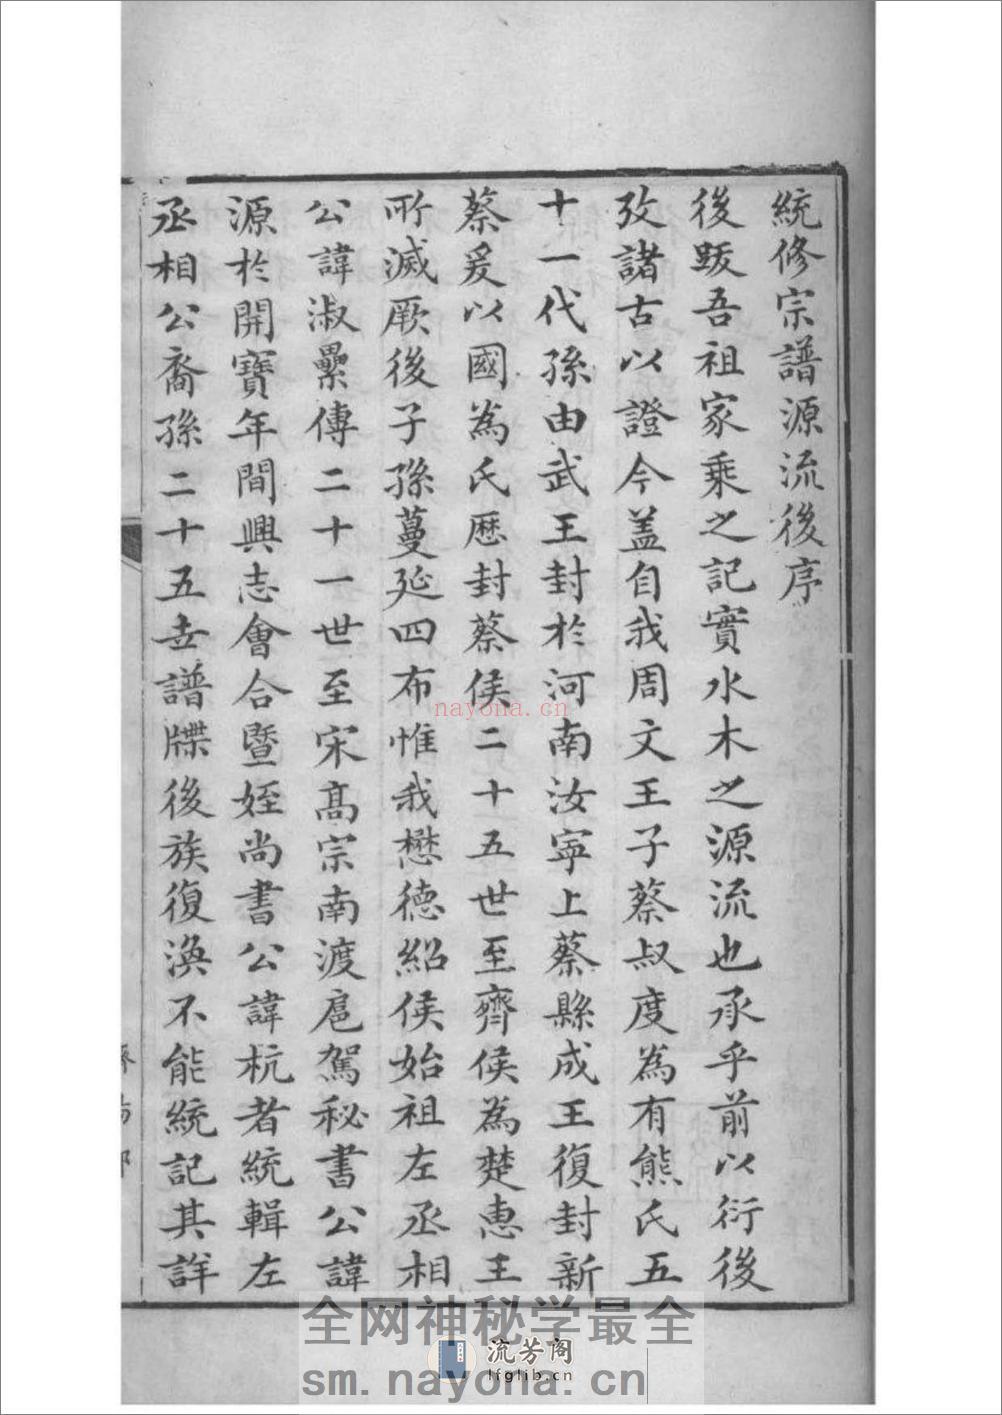 統修宗譜源流後序
後踧吾祖家乘之記實水木之源流也承乎前以衍後
攷諸古以證今盖自我周文王子蔡叔度為有熊氏五
十一代孫由武王封於河南汝寧上蔡縣成王復封新
蔡爰以國為氏歷封蔡侯二十五世至齊侯為楚惠王
所滅厥後子孫蔓延四布惟我懋德紹侯始祖左丞相
公諱淑纍傳二十一世至宋髙宗南渡扈駕秘書公諱
源於開寶年間興志會合暨姪尚書公諱杭者統輯左
丞相公裔孫二十五世譜牒後族復渙不能統記其詳
nayona.cn
全网神秘学最全
流芳阁
lfglib.cn
sm.nayona.cn